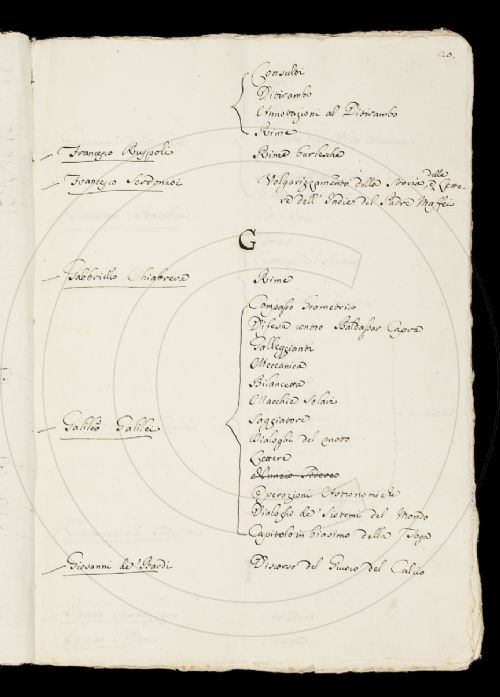 20.
Consulti
Ditirambo
Annotazioni al Ditirambo
Rime
Francesco Ruspoli Rime burlesche
Francesco Serdonati Volgarizzamento della Storia, e delle Lette-
re dell' Indie del Padre Maffei
G
Gabbriello Chiabrera Rime
Compasso Geometrico
Difesa contro Baldassar Capra
Galleggianti
Meccanica
Bilancetta
Macchie Solari
Saggiatore
Dialoghi del moto
Galileo Galilei
Lettere
Nunzio Sidereo
Operazioni Astronomiche
Dialoghi de' Sistemi del Mondo
Capitolo in biasimo della Toga
Giovanni de' Bardi Discorso del Giuoco del Calcio